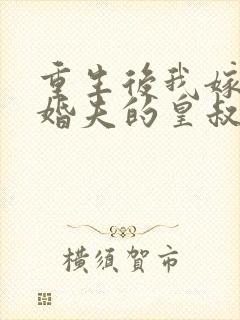 重生後我嫁
婚夫的皇叔
橫須賀市